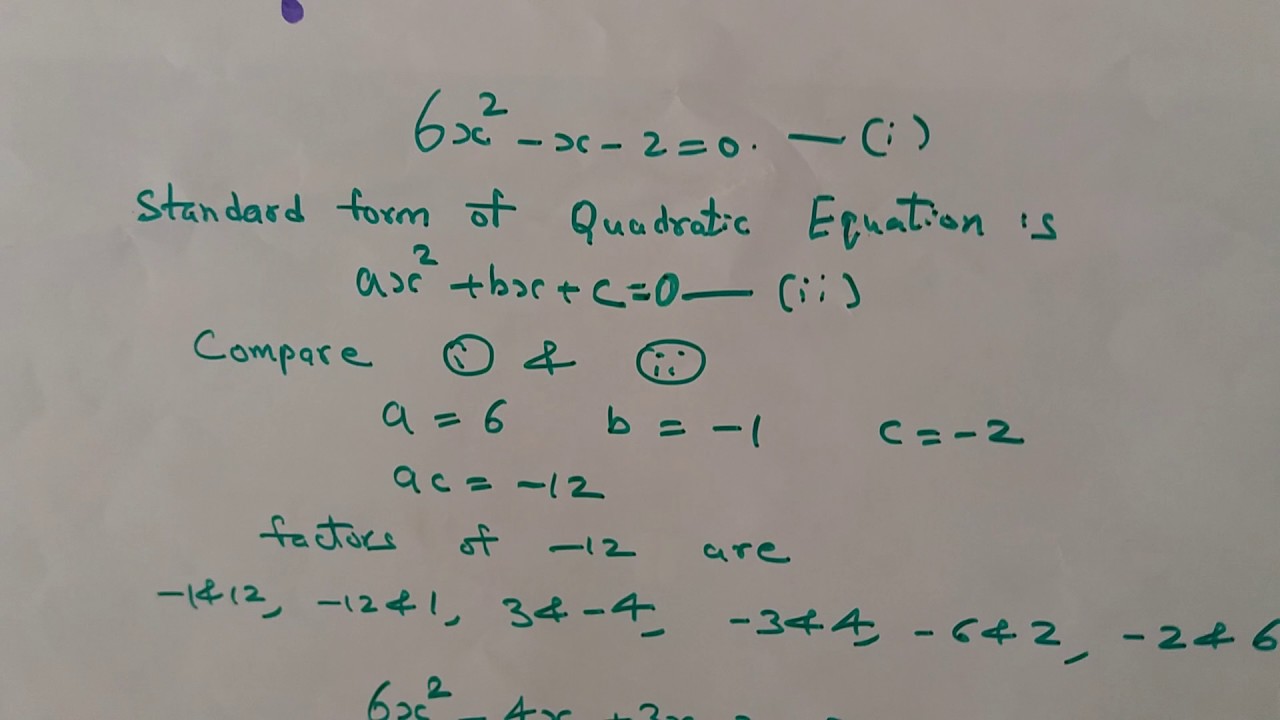 6x² - x - 2 = 0. — (i)
Standard form of Quadratic Equation is
ax² + bx + c = 0 — (ii)
Compare (i) & (ii)
a = 6 b = -1 c = -2
ac = -12
factors of -12 are
-1&12, -12&1, 3&-4, -3&4, -6&2, -2&6
6x² - 4x + 3x